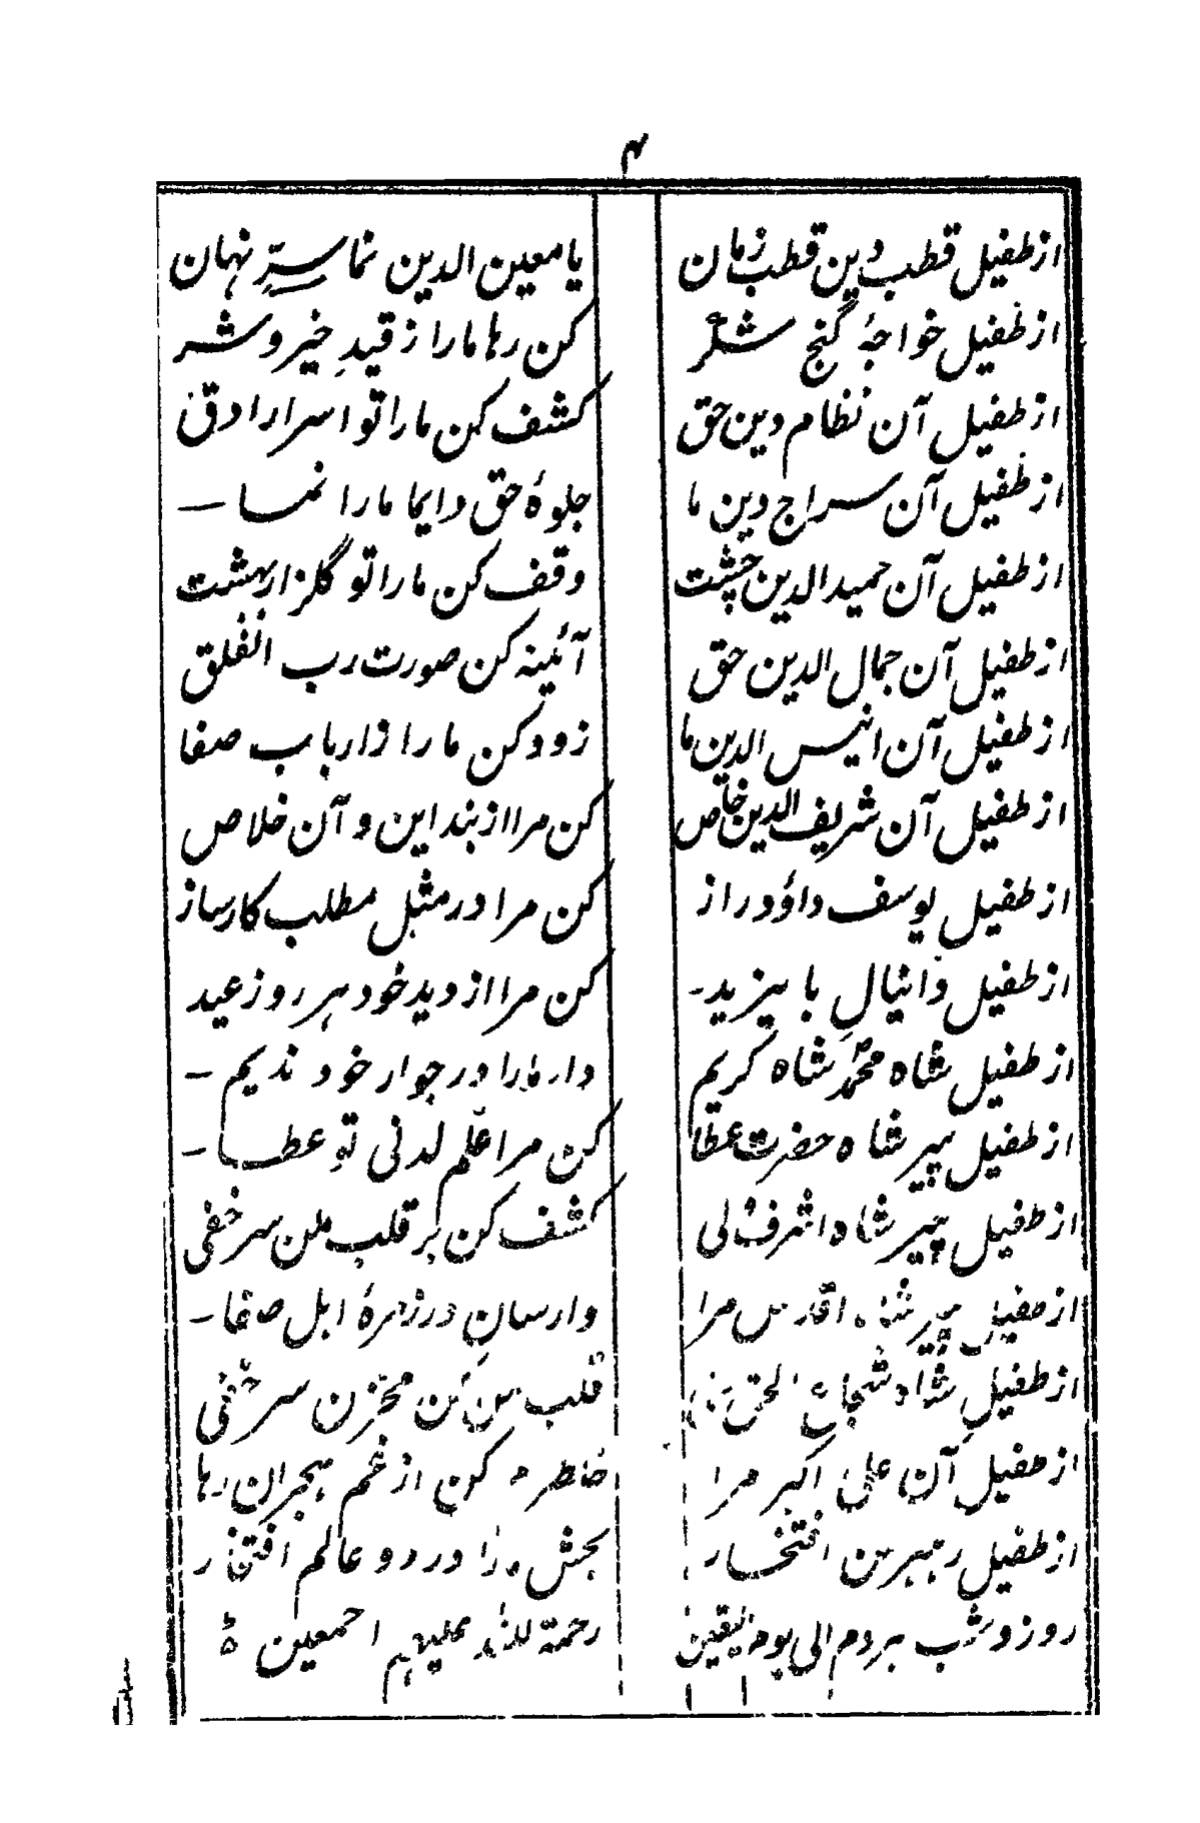 ۴
از طفیل قطب دین قطب زمان یا معین الدین نما سرِّ نہان
از طفیل خواجۂ گنج شکر کن رہا مارا ز قیدِ خیر و شر
از طفیل آن نظام دین حق کشف کن مارا تو اسرار ادق
از طفیل آن سراج دین ما جلوۂ حق دایما مارا نما
از طفیل آن حمید الدین چشت وقف کن مارا تو گلزار بہشت
از طفیل آن جمال الدین حق آئینہ کن صورت رب الفلق
از طفیل آن انیس الدین ما زود کن مارا ز ارباب صفا
از طفیل آن شریف الدین خاص کن مرا از بند این و آن خلاص
از طفیل یوسف داؤد راز کن مرا در مثبل مطلب کارساز
از طفیل دانیالِ بایزید کن مرا از دید خود ہر روز عید
از طفیل شاہ محمد شاہ کریم دار مارا در جوار خود ندیم
از طفیل پیر شاہ حضرت عطا کن مرا علم لدنی تو عطا
از طفیل پیر شاہ اشرف ولی کشف کن بر قلب من سر خفی
از طفیل پیر شاہ اقدس مرا وارسانِ در زمرۂ اہل صفا
از طفیلِ شاہ شجاع الحق قلب من کن مخزن سر خفی
از طفیل آن علی اکبر مرا خاطرم کن از غم ہجران رہا
از طفیل رہبر من افتخار بخش مارا در دو عالم افتخار
روز و شب ہر دم الی یوم الیقین رحمۃ للہ علیہم اجمعین ہ